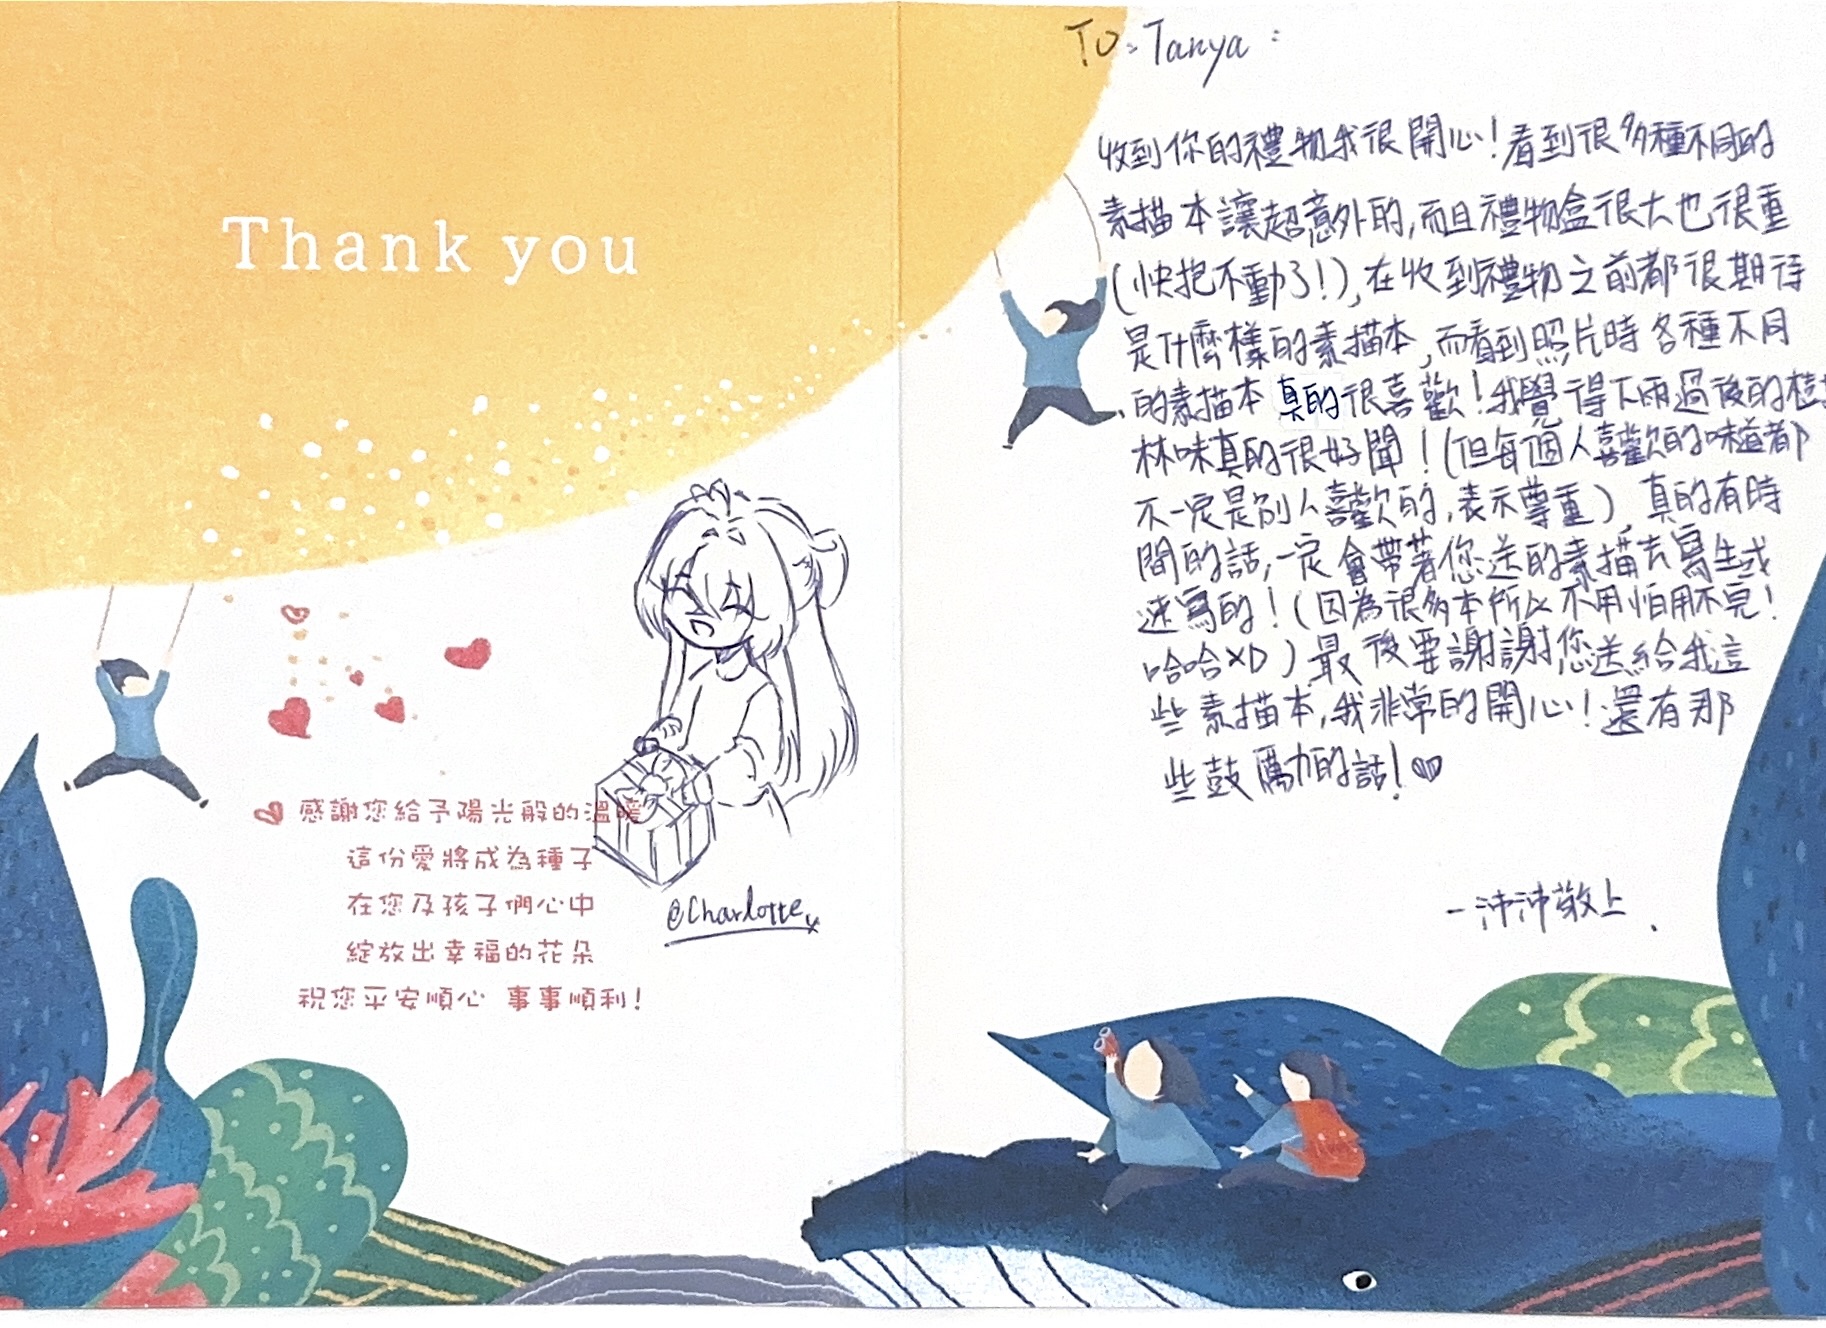 Thank you
感謝您給予陽光般的溫暖
這份愛將成為種子
在您及孩子們心中
綻放出幸福的花朵
祝您平安順心 事事順利!
@Charlotte
To: Tanya:
收到你的禮物我很開心!看到很多種不同的
素描本讓超意外的,而且禮物盒很大也很重
(快抱不動了!),在收到禮物之前都很期待
是什麼樣的素描本,而看到照片時各種不同
的素描本真的很喜歡!我覺得下雨過後的樹
林味真的很好聞!(但每個人喜歡的味道都
不一定是別人喜歡的,表示尊重),真的有時
間的話,一定會帶著您送的素描去寫生或
速寫的!(因為很多本所以不用怕用不完!
哈哈XD)最後要謝謝您送給我這
些素描本,我非常的開心!還有那
些鼓勵的話!
-沛沛敬上.